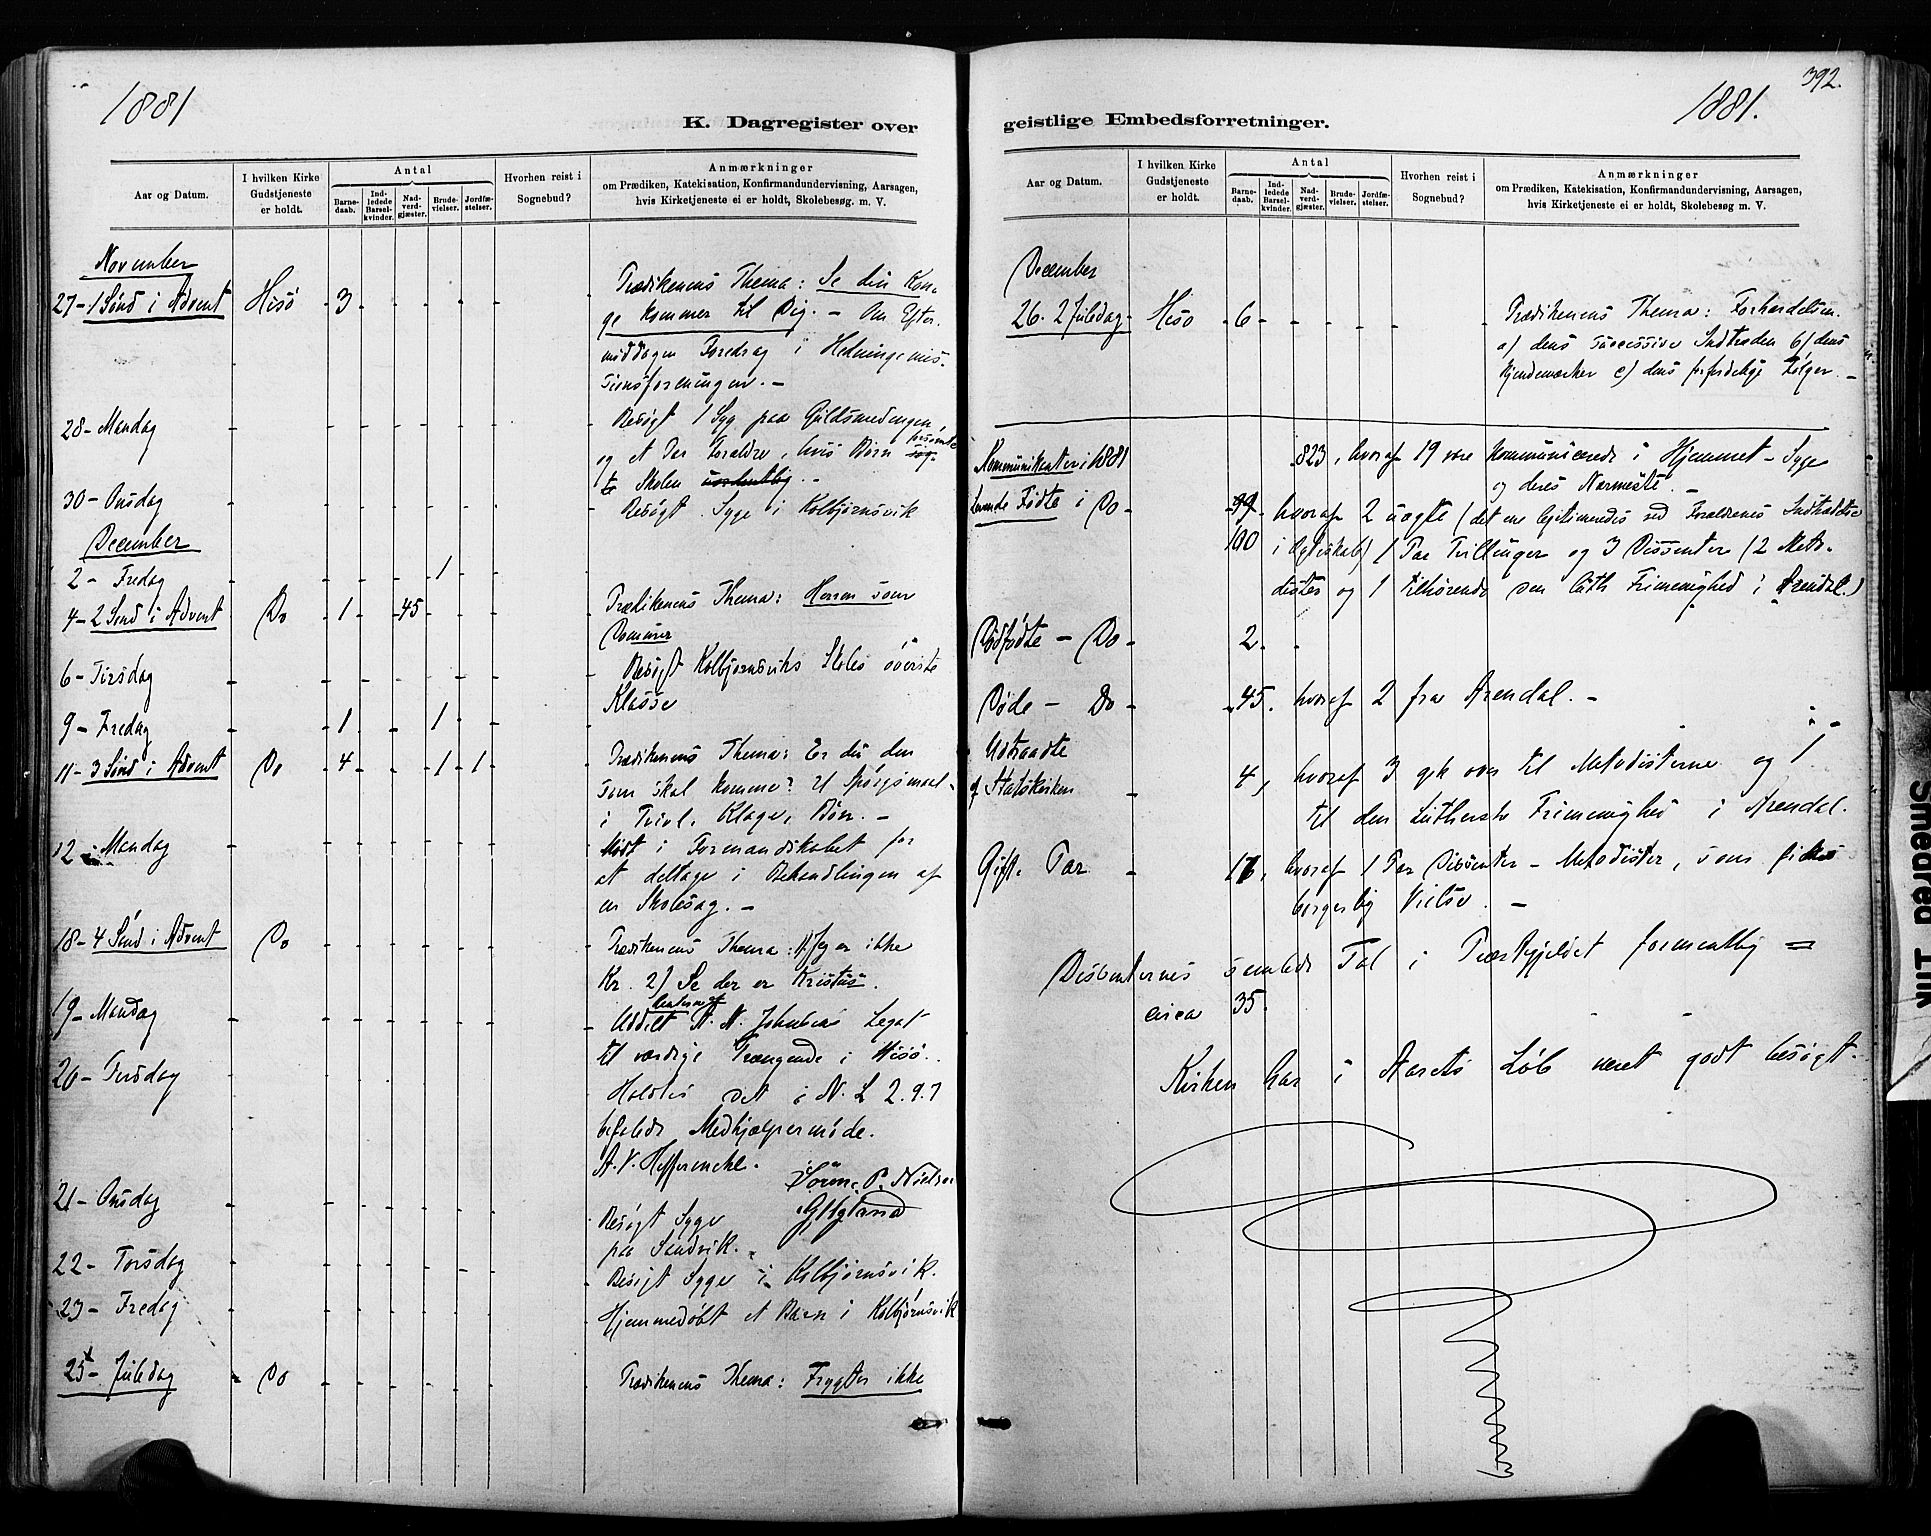 1881
K. Dagregister over
Aar og Datum.
I hvilken Kirke Gudstjeneste er holdt.
Antal
Barnedaab.
Indledede Barselkvinder.
Nadverdgjæster.
Brudevielser.
Jordfæstelser.
Hvorhen reist i Sognebud?
Anmærkninger
om Prædiken, Katekisation, Konfirmandundervisning, Aarsagen,
hvis Kirketjeneste ei er holdt, Skolebesøg m. V.
November
27 - 1 Sönd i Advent Hisö 3 - - - - - Prædikenens Thema: Se din Kon-
ge kommer til Dig. - Om Efter-
middagen Foredrag i Hedningemis-
sionsforeningen. -
28 - Mandag - - - - - - Besøgt 1 Syg paa Guldsmedengen,
og et Par Forældre, hvis Børn forsömte
Skolen uordentlig. -
30 - Onsdag - - - - - - Besøgt Syge i Kolbjørnsvik
December
2 - Fredag - - - 1 -
4 - 2 Sönd i Advent Do 1 - 45 - - Prædikenens Thema: Herren som
Dommer
6 - Tirsdag - - - - - - Besøgt Kolbjørnsviks Skoles överste
Klasse
9 - Fredag - 1 - - 1 - -
11 - 3 Sönd i Advent Do 4 - - 1 1 - Prædikenens Thema: Er du den
som skal komme? Et Spörgsmaal
i Tvivl, Klage, Bön. -
12 - Mandag - - - - - - Mödt i Formandskabet for
at deltage i Behandlingen af
en Skolesag. -
18 - 4 Sönd i Advent Do - - - - - Prædikenens Thema: 1) Jeg er ikke
Kr. 2) Se der er Kristus.
19 - Mandag - - - - - - Uddelt Renterne af N. Legat
til værdige Trængende i Hisö.
20 - Tirsdag Holdtes det i N. L 2.9.7
befalede Medhjælpermöde.
A. V. Heffermehl. Sören P. Nielsen
21 - Onsdag - - - - - - Besøgt Syge
paa Sandvik.
22 - Torsdag - - - - - - Besøgt Syge i Kolbjørnsvik.
23 - Fredag - - - - - - Hjemmedøbt et Barn i Kolbjørnsvik
25 - Juledag - Do - - - - - Prædikenens Thema: Frygter ikke
392.
1881.
geistlige Embedsforretninger.
Aar og Datum.
I hvilken Kirke Gudstjeneste er holdt.
Antal
Barnedaab.
Indledede Barselkvinder.
Nadverdgjæster.
Brudevielser.
Jordfæstelser.
Hvorhen reist i Sognebud?
Anmærkninger
om Prædiken, Katekisation, Konfirmandundervisning, Aarsagen,
hvis Kirketjeneste ei er holdt, Skolebesøg m. V.
December
26. 2 Juledag - Hisö - 6 - - - - - Prædikenens Thema: Forhærdelsen
a) dens successive Indtræden b) dens
Kjendemærker c) dens forfærdelige Følger. -
Kommunikanter i 1881 823, hvoraf 19 vare kommunicerede i Hjemmet - Syge
og deres Nærmeste. -
Levende Födte i Do - 99 hvoraf 2 uægte (det ene legitimeredes ved Forældrenes Indtrædelse
100 i Ægteskab) 1 Par Tvillinger og 3 Dissenter (2 Meto-
dister og 1 tilhørende den luth Frimenighed i Arendal.)
Dödfödte - Do - 2.
Døde - Do - 45. hvoraf 2 fra Arendal. -
Udtraadte
af Statskirken - 4, hvoraf 3 gik over til Metodisterne og 1
til den Lutherske Frimenighed i Arendal.
Gifte Par - 17, hvoraf 1 Par Dissenter - Metodister, som fik
borgerlig Vielse. -
Dissenternes samlede Tal i Præstegjeldet formentlig =
circa 35.
Kirken har i Aarets Løb været godt besøgt.
Smedrød Trik